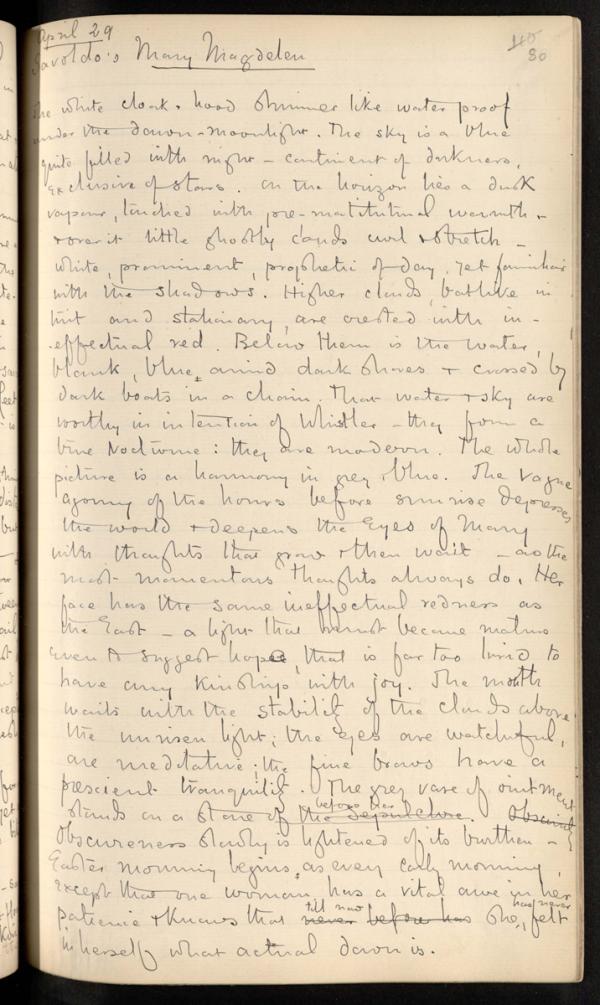 April 29
Savoldo's Mary Magdalen
40
80
The white cloak & hood shimmer like waterproof
under the dawn-moonlight. The sky is a blue
quite filled with night – continent of darkness,
exclusive of stars. On the horizon lies a dusk
vapour, touched with pre-matutinal warmth –
& over it little ghostly clouds curl & stretch –
white, prominent, prophetic of day, yet familiar
with the shadows. Higher clouds, batlike in
tint and stationary, are crested with in-
effectual red. Below them is the water,
blank, blue, amid dark shores & crossed by
dark boats in a chain. That water & sky are
worthy in intention of Whistler – they form a
blue Nocturne: they are modern. The whole
picture is a harmony in grey & blue. The vague
agony of the hours before sunrise depresses
the world & deepens the Eyes of Mary
with thoughts that grow & then wait – as the
most momentous thoughts always do. Her
face has the same ineffectual redness as
the East – a light that must become mature
even to suggest hope, that is far too lurid to
have any kinship with joy. The mouth
waits with the stability of the clouds above
the unrisen light; the eyes are watchful,
are meditative; the fine brows have a
prescient tranquility. The grey vase of ointment
stands on a stone of the Sepulchre. before her Obscurely
Obscureness slowly is lightened of its burthen –
Easter morning begins, as every early morning,
except that one woman has a vital awe in her
patience & knows that never before has till now she has never felt
in herself what actual dawn is.